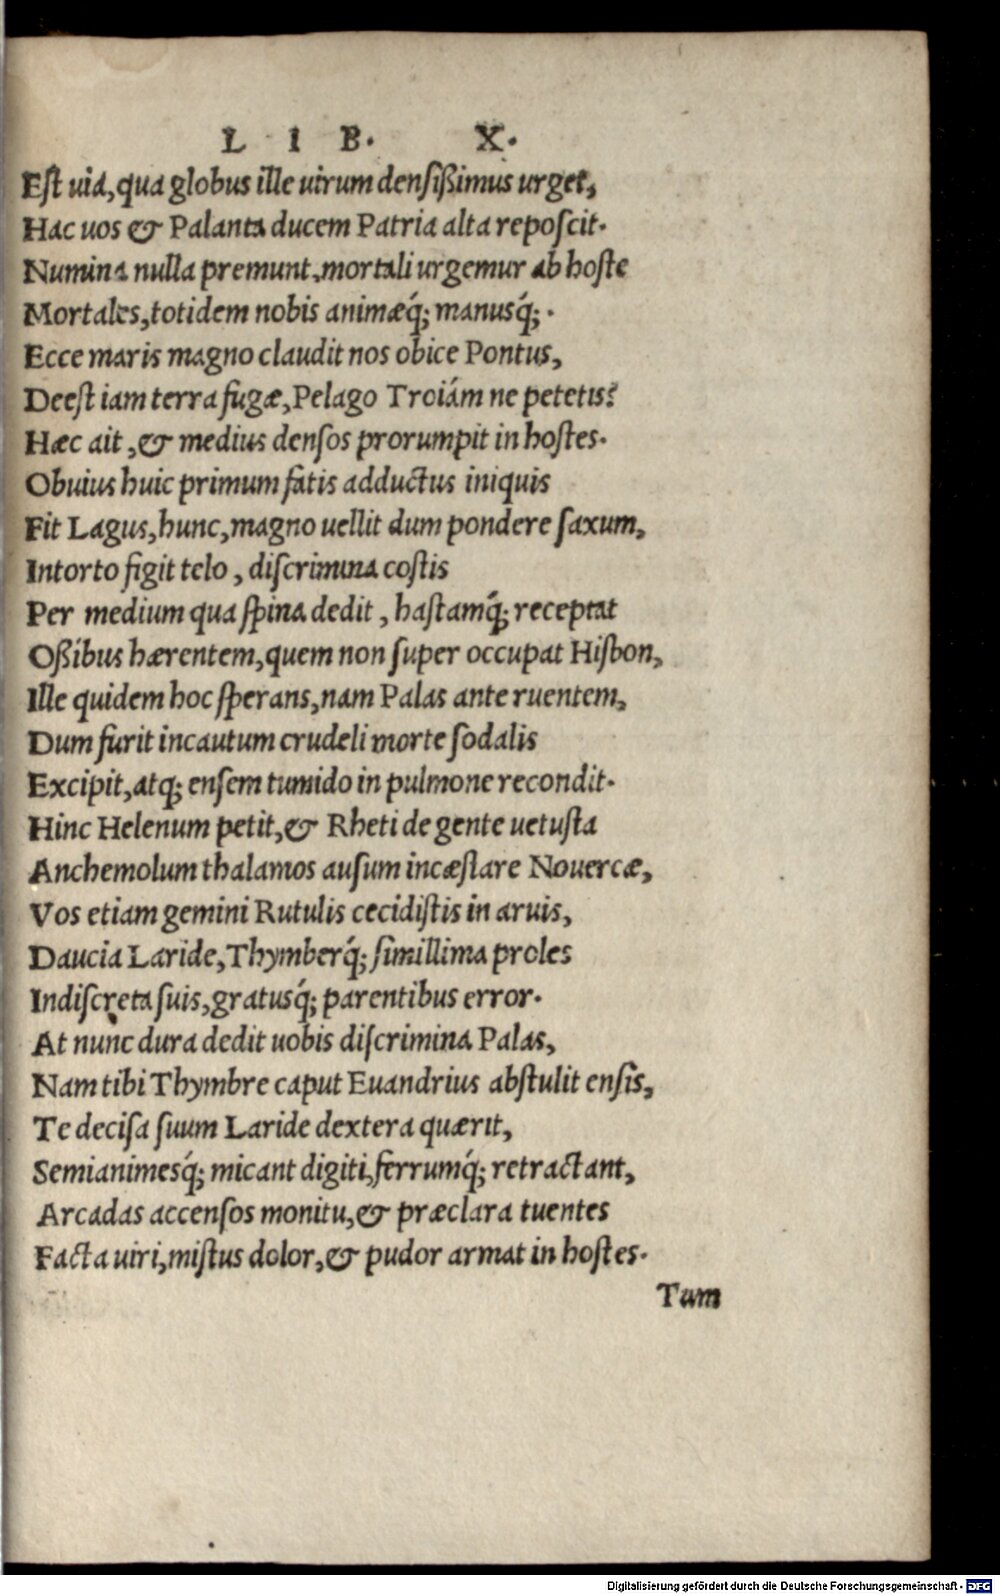 L I B. X.
Est uia, qua globus ille uirum densißimus urget,
Hac uos & Palanta ducem Patria alta reposcit.
Numina nulla premunt, mortali urgemur ab hoste
Mortales, totidem nobis animæq́; manusq́; .
Ecce maris magno claudit nos obice Pontus,
Deest iam terra fugæ, Pelago Troiám ne petetis?
Hæc ait, & medius densos prorumpit in hostes.
Obuius huic primum fatis adductus iniquis
Fit Lagus, hunc, magno uellit dum pondere saxum,
Intorto figit telo, discrimina costis
Per medium qua spina dedit, hastamq́; receptat
Oßibus hærentem, quem non super occupat Hisbon,
Ille quidem hoc sperans, nam Palas ante ruentem,
Dum furit incautum crudeli morte sodalis
Excipit, atq; ensem tumido in pulmone recondit.
Hinc Helenum petit, & Rheti de gente uetusta
Anchemolum thalamos ausum incæstare Nouercæ,
Vos etiam gemini Rutulis cecidistis in aruis,
Daucia Laride, Thymberq́; simillima proles
Indiscreta suis, gratusq́; parentibus error.
At nunc dura dedit uobis discrimina Palas,
Nam tibi Thymbre caput Euandrius abstulit ensis,
Te decisa suum Laride dextera quærit,
Semianimesq́; micant digiti, ferrumq́; retractant,
Arcadas accensos monitu, & præclara tuentes
Facta uiri, mistus dolor, & pudor armat in hostes.
Tum
Digitalisierung gefördert durch die Deutsche Forschungsgemeinschaft - DFG